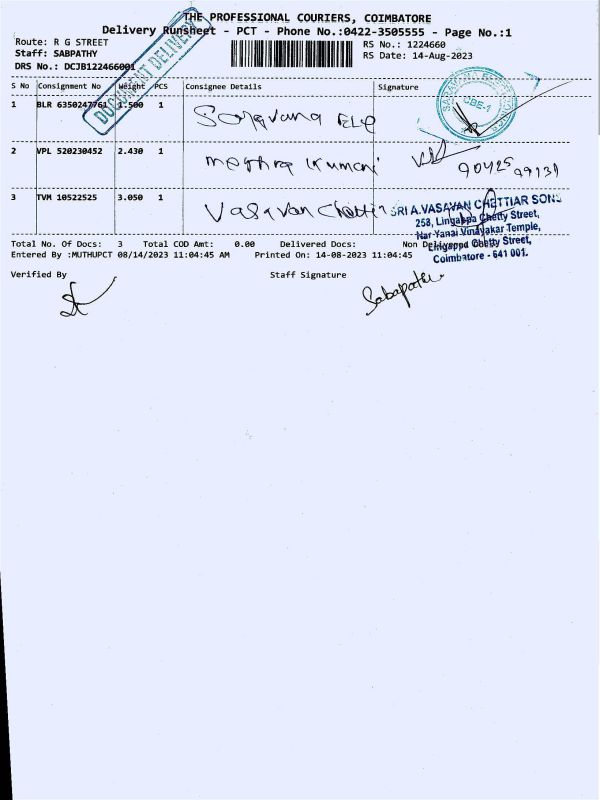 THE PROFESSIONAL COURIERS, COIMBATORE
Delivery Runsheet - PCT - Phone No.:0422-3505555 - Page No.:1
Route: R G STREET
Staff: SABPATHY
DRS No.: DCJB122466001
RS No.: 1224660
RS Date: 14-Aug-2023
DOCUMENT DELIVERY
S No Consignment No Weight PCS Consignee Details Signature
1 BLR 6350247761 1.500 1 Saravana Ele
CBE-1
2 VPL 520230452 2.430 1 Meghra Kumari 90425 99131
3 TVM 10522525 3.050 1 Vasavan Chetti
SRI A.VASAVAN CHETTIAR SONS
258, Lingappa Chetty Street,
Nar Yanai Vinayakar Temple,
Lingappa Chetty Street,
Coimbatore - 641 001.
Total No. Of Docs: 3 Total COD Amt: 0.00 Delivered Docs: Non Delivered
Entered By :MUTHUPCT 08/14/2023 11:04:45 AM Printed On: 14-08-2023 11:04:45
Verified By Staff Signature
Sabapathi